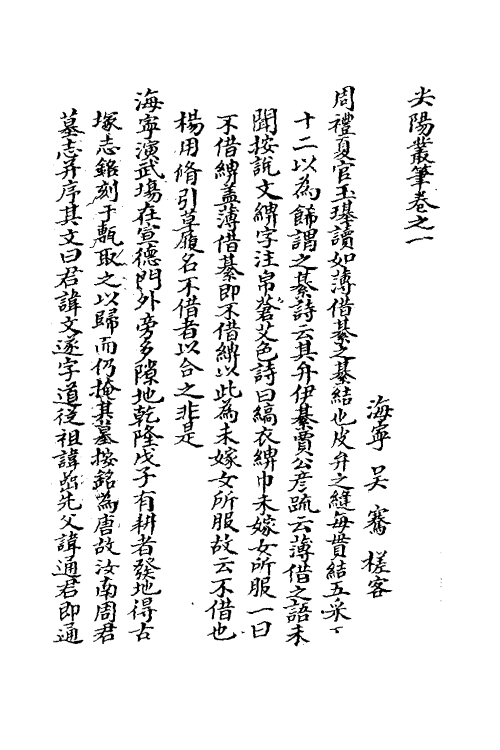 尖陽叢筆卷之一
海寧 吳騫 槎客
周禮夏官玉璂讀如薄借綦之綦結也皮弁之縫每貫結五采玉
十二以為飾謂之綦詩云其弁伊綦賈公彥疏云薄借之語未
聞按說文綼字注帛蒼艾色詩曰縞衣綼巾未嫁女所服一曰
不借綼蓋薄借綦即不借綼以此為未嫁女所服故云不借也
楊用脩引草履名不借者以合之非是
海寧演武塲在宣德門外旁多隙地乾隆戊子有耕者發地得古
塚志銘刻于甎取之以歸而仍掩其墓按銘為唐故汝南周君
墓志并序其文曰君諱文遂字道從祖諱岳先父諱通君即通